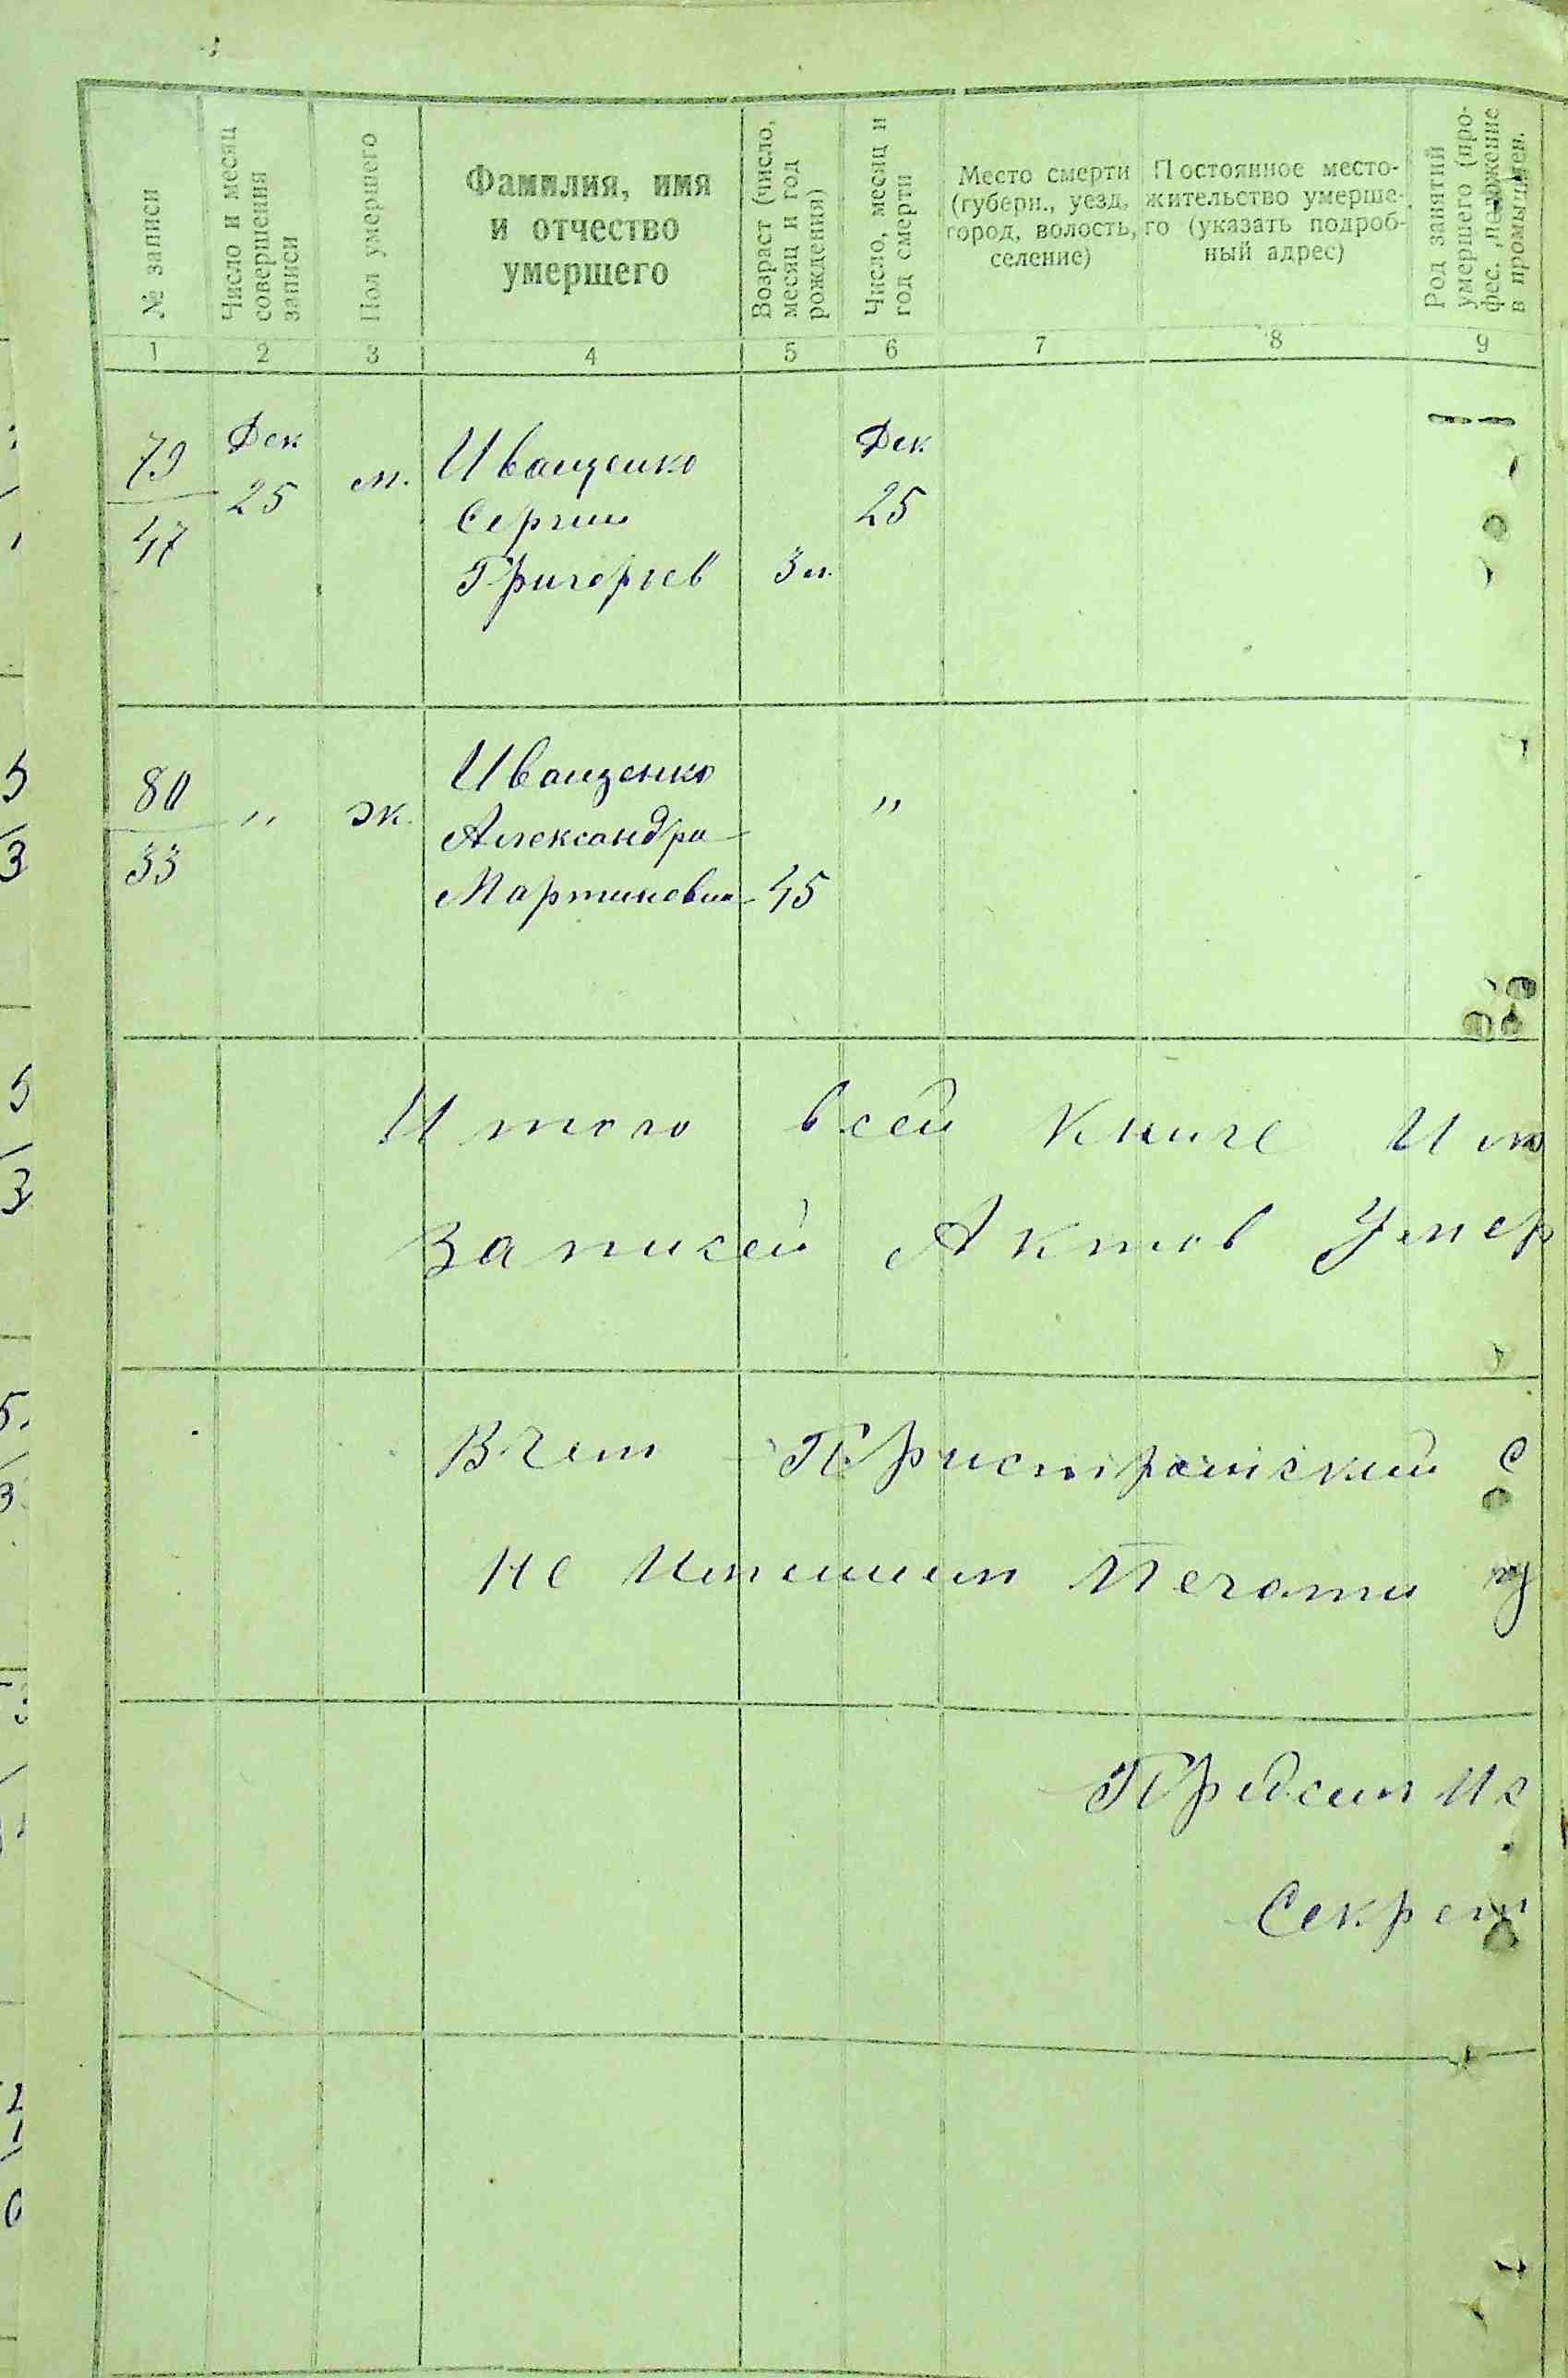 № записи
Число и месяц
совершения
записи
Пол умершего
Фамилия, имя
и отчество
умершего
Возраст (число,
месяц и год
рождения)
Число, месяц и
год смерти
Место смерти
(губерн., уезд,
город, волость,
селение)
Постоянное место-
жительство умерше-
го (указать подроб-
ный адрес)
Род занятий
умершего (про-
фес., положение
в промышлен.
1 2 3 4 5 6 7 8 9
79
47
Дек
25
м.
Иващенко
Сергии
Григорьев
3 м.
Дек
25
80
33
"
ж.
Иващенко
Александра
Мартиновна
45
"
Итого всей Книге
Записей Актов Умер
не Имеиим Печати
Предсип Ис
Секрет